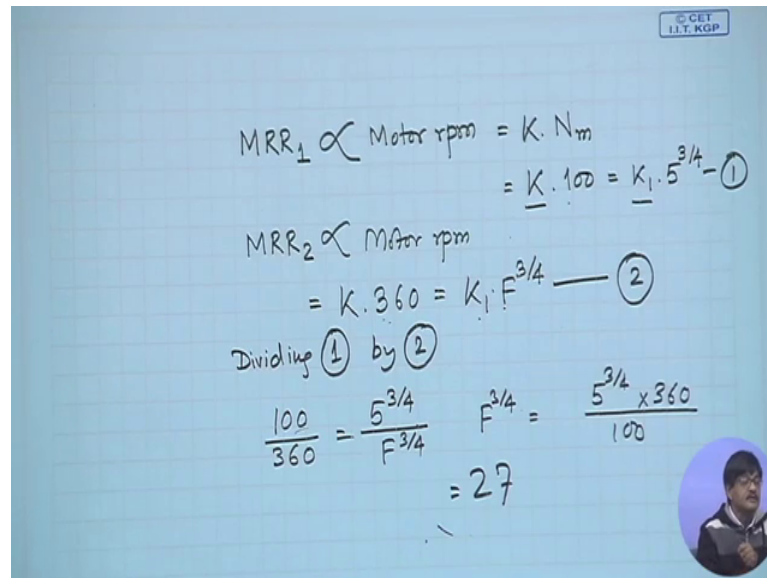 © CET
I.I.T. KGP
MRR₁ ∝ Motor rpm = K. Nₘ
= K . 100 = K₁. 5^3/4 – ①
MRR₂ ∝ Motor rpm
= K. 360 = K₁. F^3/4 —— ②
Dividing ① by ②
100/360 = 5^3/4 / F^3/4 F^3/4 = 5^3/4 x 360 / 100
= 27